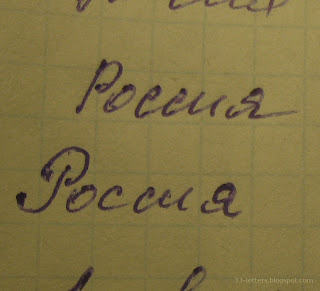 Россия
Россия
33-letters.blogspot.com